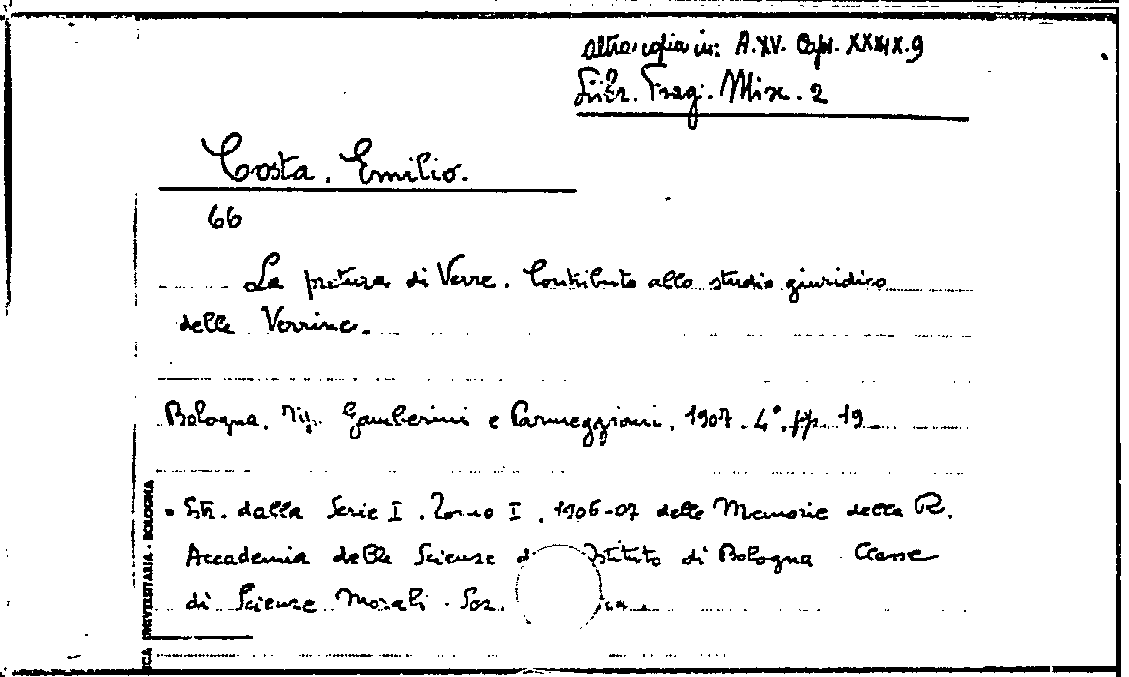 altra copia in: A.XV. Caps. XXXIX.9
Misc. 2
Costa, Emilio.
66
La pretura di Verre. Contributo allo studio giuridico
delle Verrine.
Bologna, Tip. Gamberini e Parmeggiani, 1907. 4°, pp. 19
Estr. dalla Serie I. Tomo I, 1906-07 delle Memorie della R.
Accademia delle Scienze di Bologna Classe
di Scienze Morali.
BOLOGNA